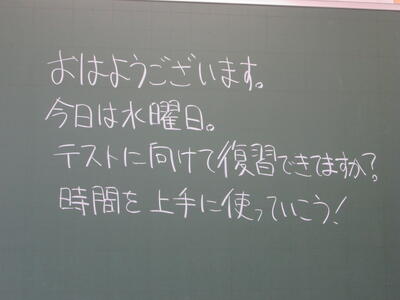 おはようございます。
今日は水曜日。
テストに向けて復習できてますか?
時間を上手に使っていこう!